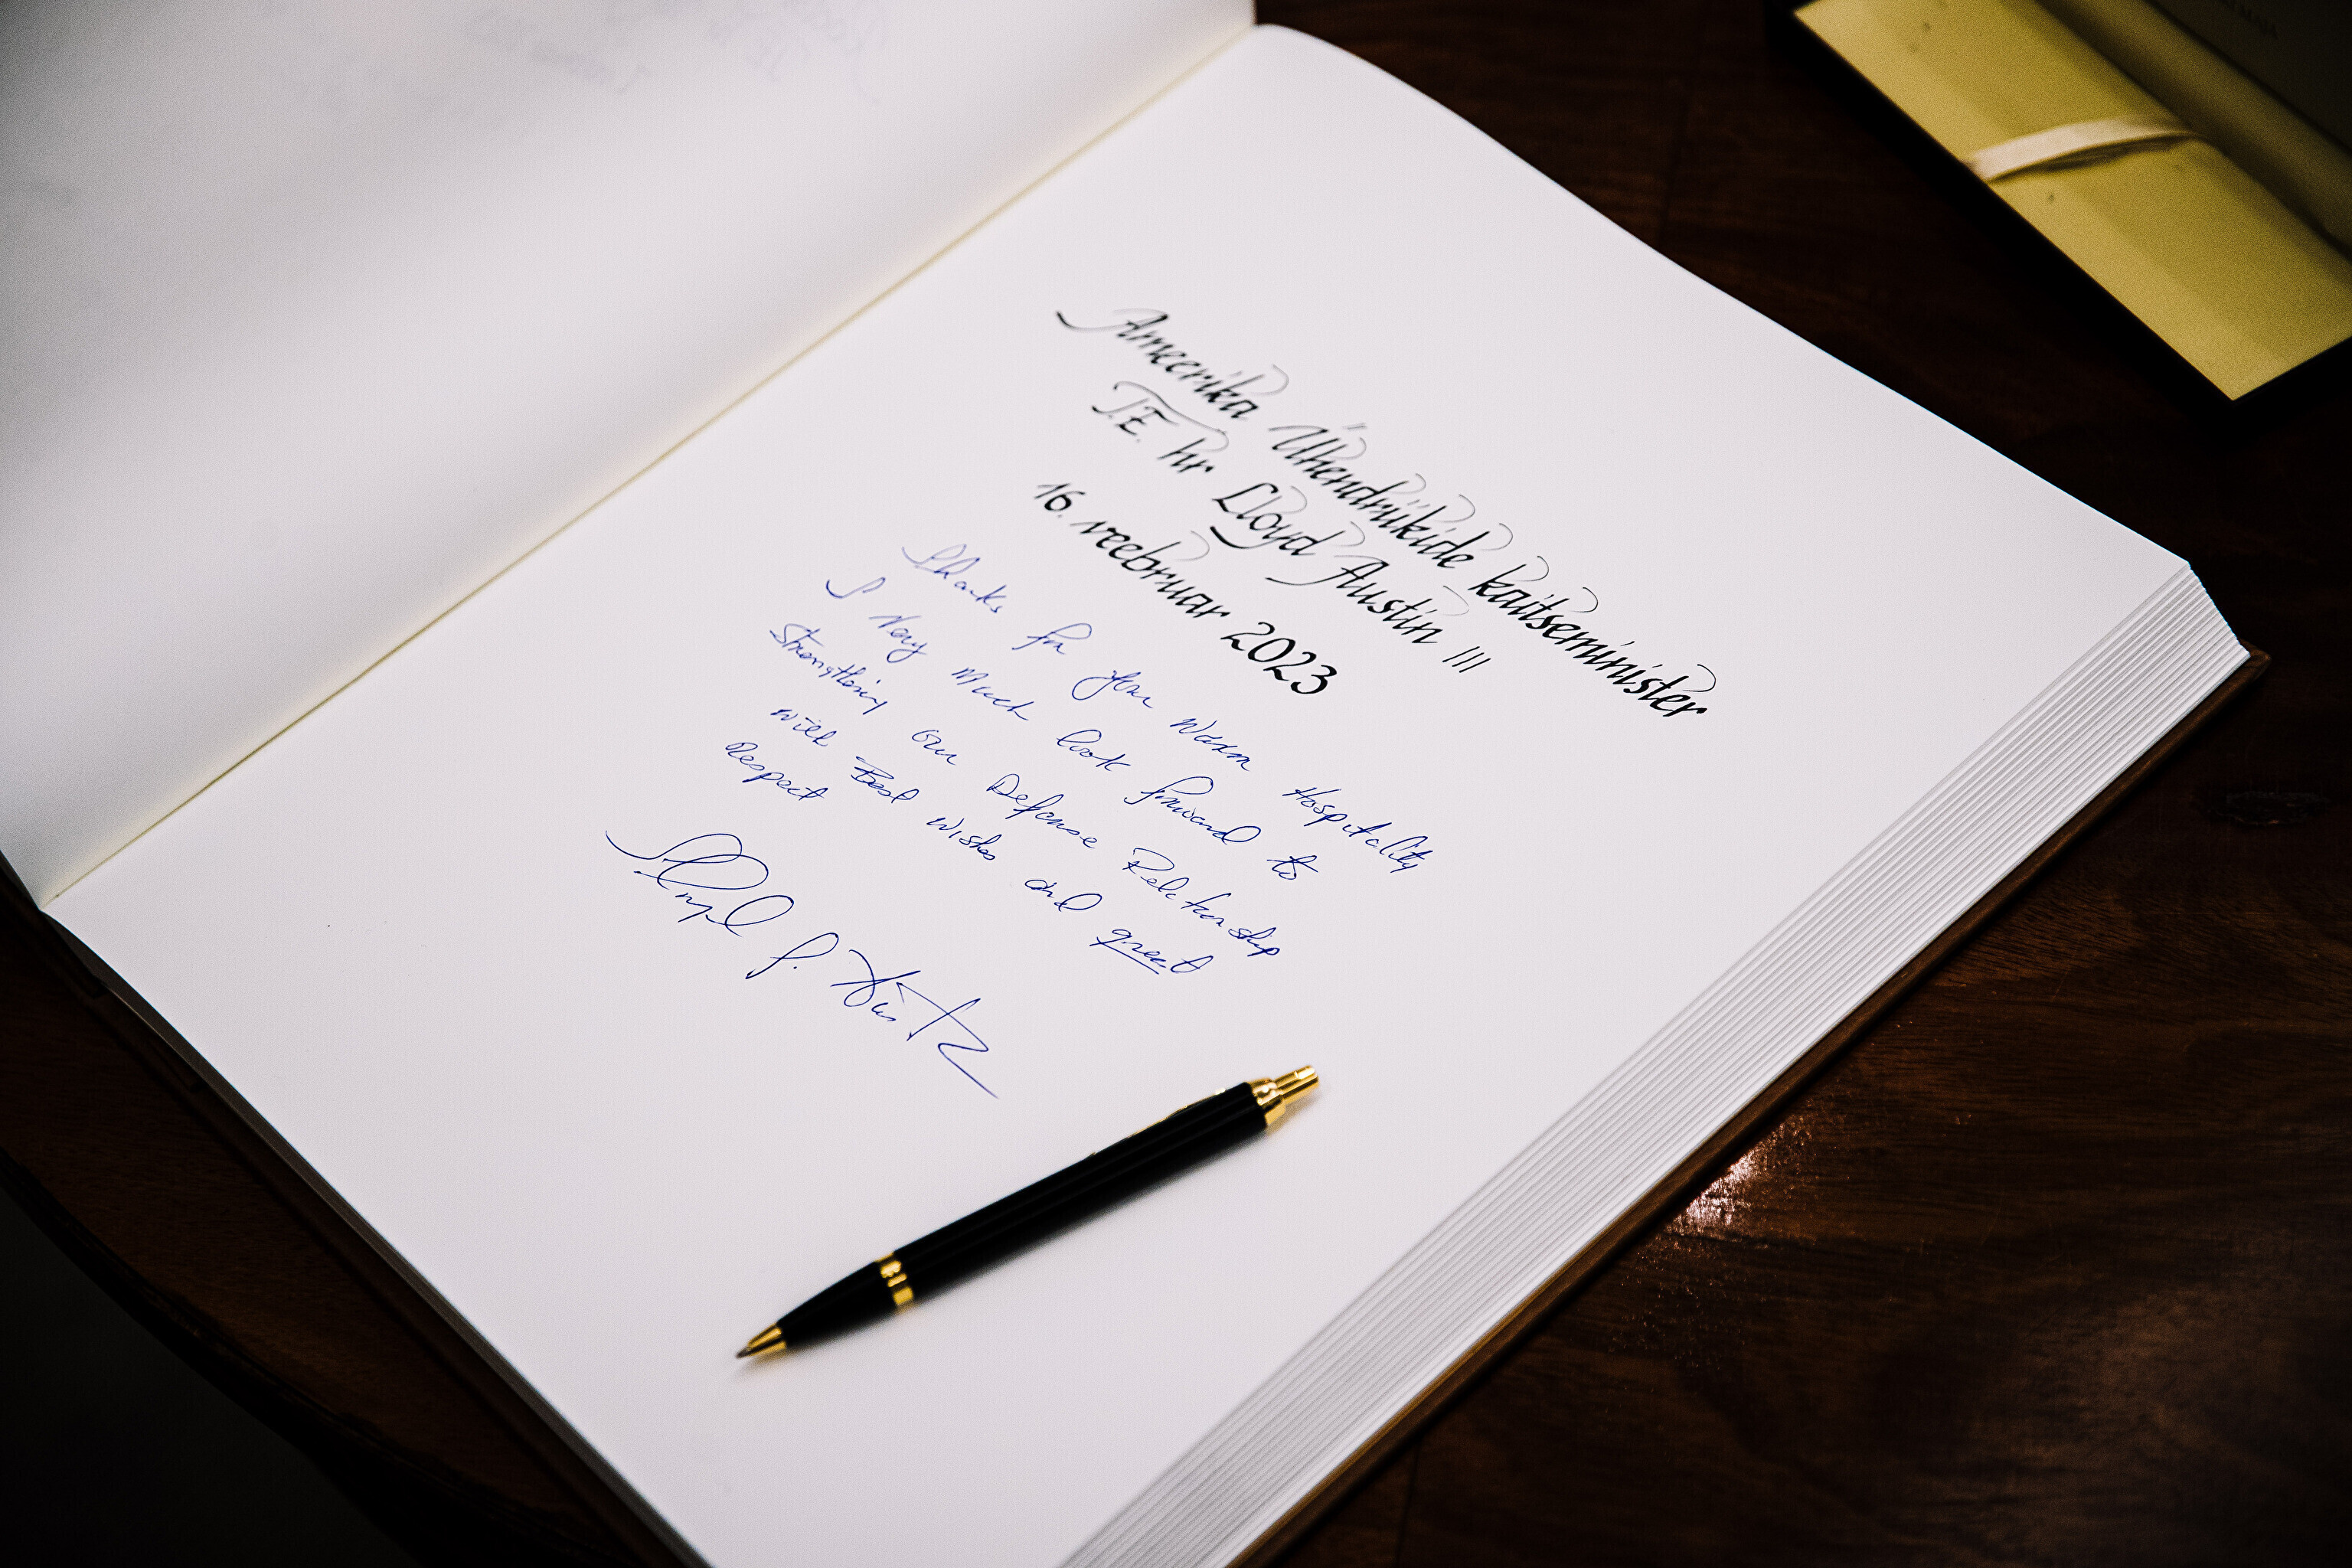 Ameerika Ühendriikide kaitseminister
T.E. hr Lloyd Austin III
16. veebruar 2023
Thanks for your Warm Hospitality
I Very Much look forward to
Strengthening our Defense Relationship
With Best Wishes and great
Respect
Lloyd J. Austin